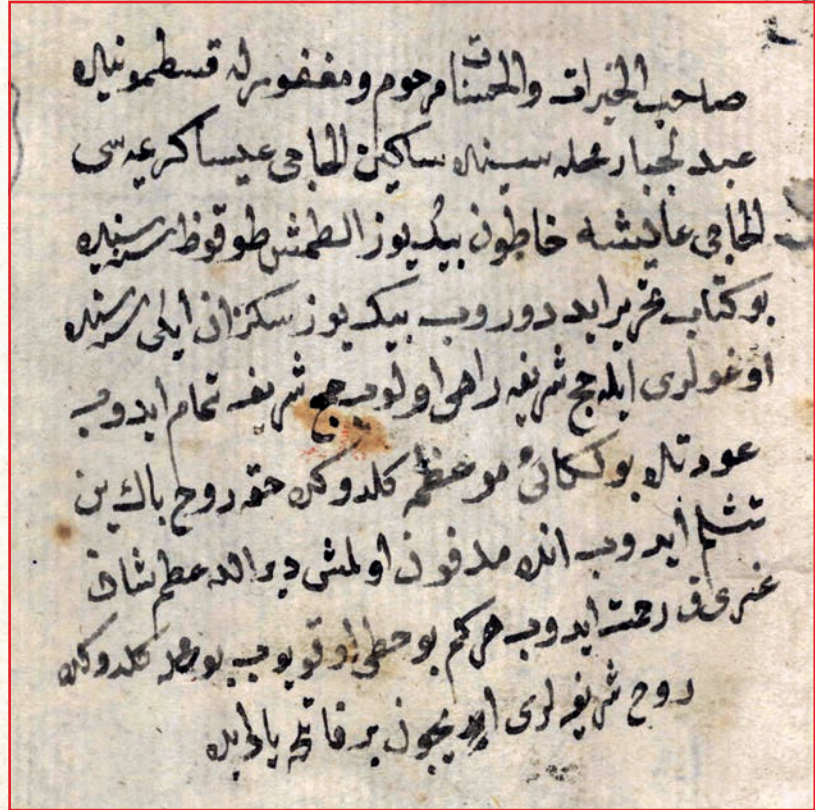 صاحب الخيرات والحسنات مرحوم ومغفور له قسطمونيده
عبد لجبار محله سينده ساكين الحاجى عيسا كريمه سى
الحاجى عايشه خاطون بيك يوز الطمش طوقوظ سنه سنيده
بو كتاب تحرير ايد دوروب بيك يوز سكزان ايكى سنه سنده
اوغولرى ايله حج شريفه راهى اولوب حج شريف تمام ايدوب
عودتده بو موعظم كلدوكده حقه روح پاك ين
تشلم ايدوب انده مدفون اولمش در الله عظم شان
غريق رحمت ايدوب هركم بو حطى اوقويوب بو محله كلدوكده
روح شريفلرى ايچون بر فاتحه ياد ايده